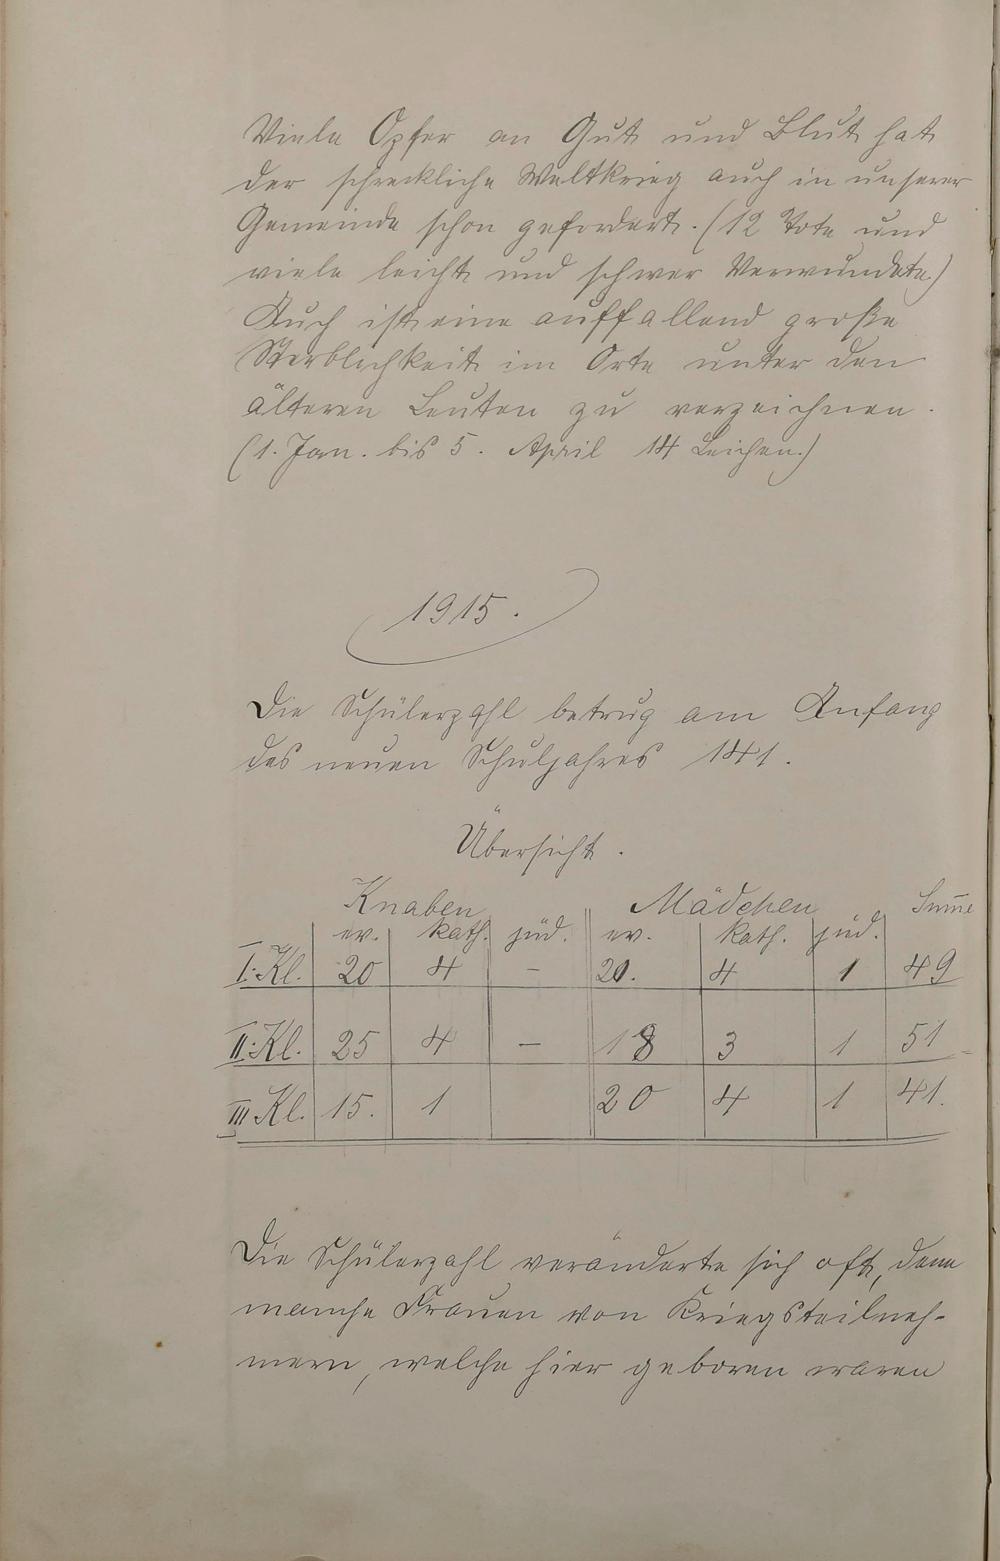 Viele Opfer an Gut und Blut hat
der schreckliche Weltkrieg auch in unserer
Gemeinde schon gefordert. (12 Tote und
viele leicht und schwer Verwundete.)
Auch ist eine auffallend große
Sterblichkeit im Orte unter den
älteren Leuten zu verzeichnen.
(1. Jan. bis 5. April 14 Leichen.)
1915.
Die Schülerzahl betrug am Anfang
des neuen Schuljahres 141.
Übersicht.
Knaben Mädchen Sum̅e
ev. kath. jüd. ev. kath. jüd.
I. Kl. 20 4 – 20. 4 1 49
II. Kl. 25 4 – 18 3 1 51
III Kl. 15. 1 20 4 1 41.
Die Schülerzahl veränderte sich oft, denn
manche Frauen von Kriegsteilneh-
mern, welche hier geboren waren